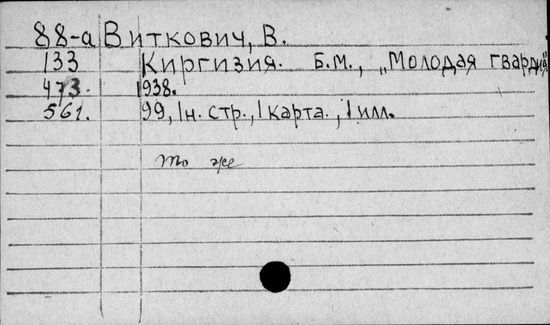 88-а Виткович, В.
133 Киргизия. Б.М., „Молодая гвардия"
473. 1938.
561. 99, 1н. стр., 1 карта., 1 илл.
то же